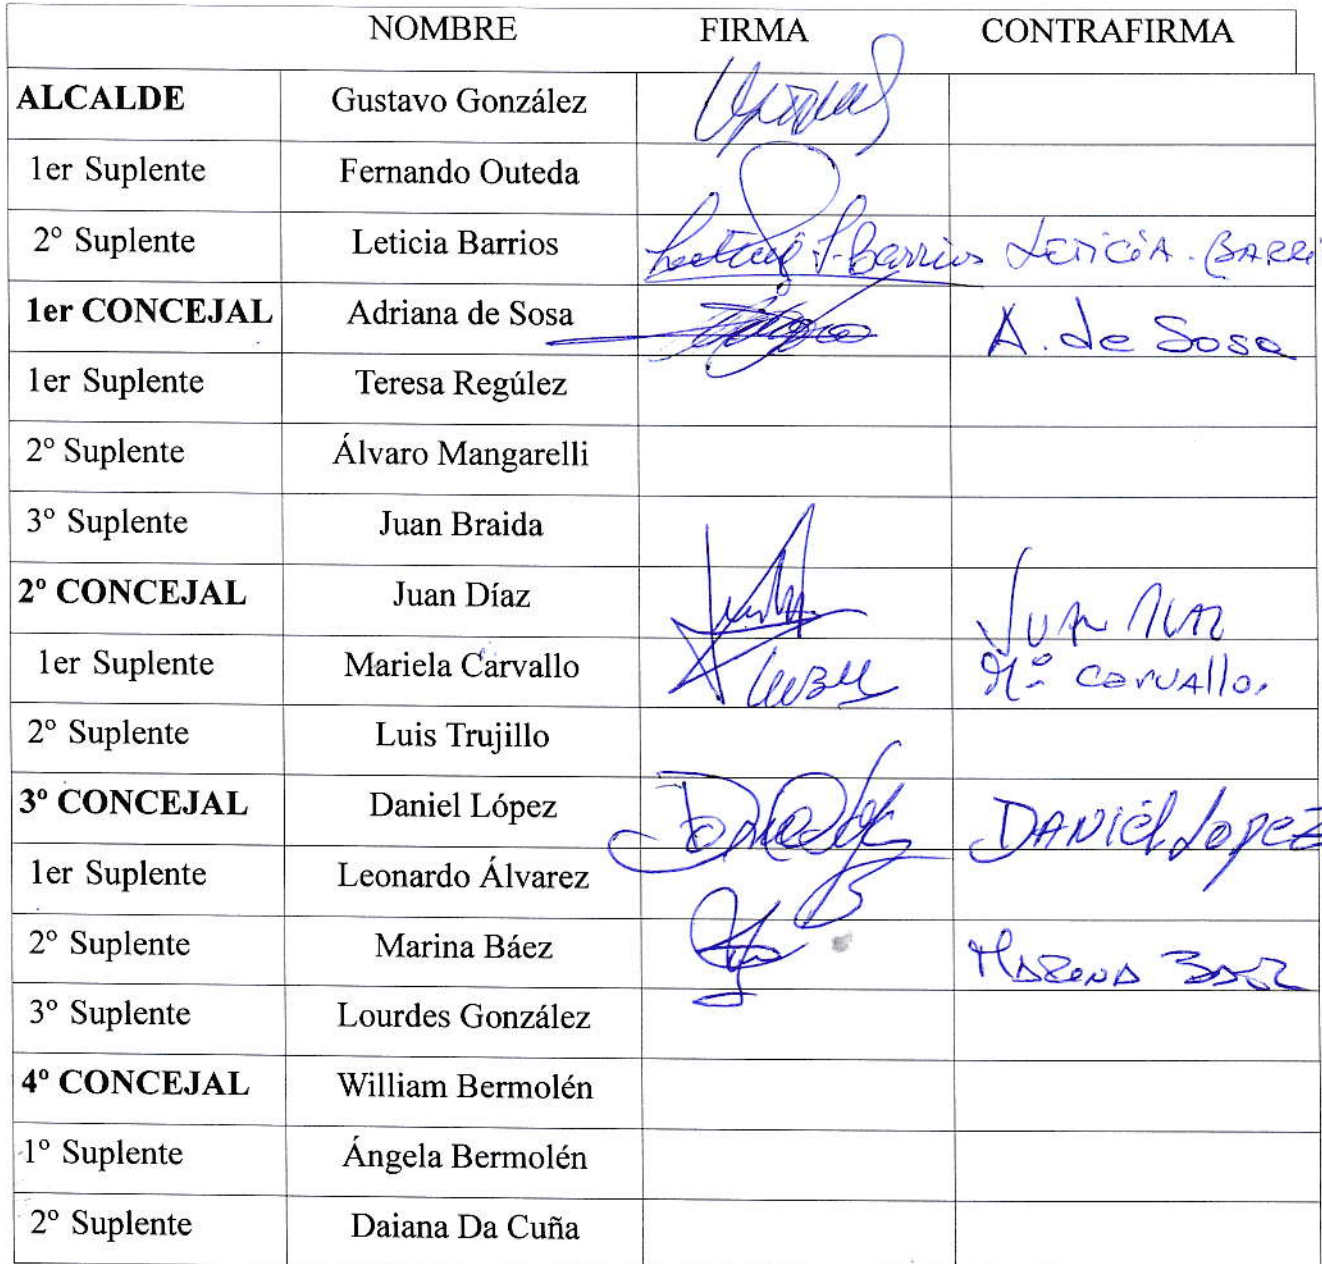 NOMBRE FIRMA CONTRAFIRMA
ALCALDE Gustavo González
1er Suplente Fernando Outeda
2º Suplente Leticia Barrios LETICIA. BARRI
1er CONCEJAL Adriana de Sosa A. de Sosa
1er Suplente Teresa Regúlez
2º Suplente Álvaro Mangarelli
3º Suplente Juan Braida
2º CONCEJAL Juan Díaz JUAN
1er Suplente Mariela Carvallo Mª CARVAllo.
2º Suplente Luis Trujillo
3º CONCEJAL Daniel López DANIEL LOPEZ
1er Suplente Leonardo Álvarez
2º Suplente Marina Báez MARINA BAEZ
3º Suplente Lourdes González
4º CONCEJAL William Bermolén
1º Suplente Ángela Bermolén
2º Suplente Daiana Da Cuña